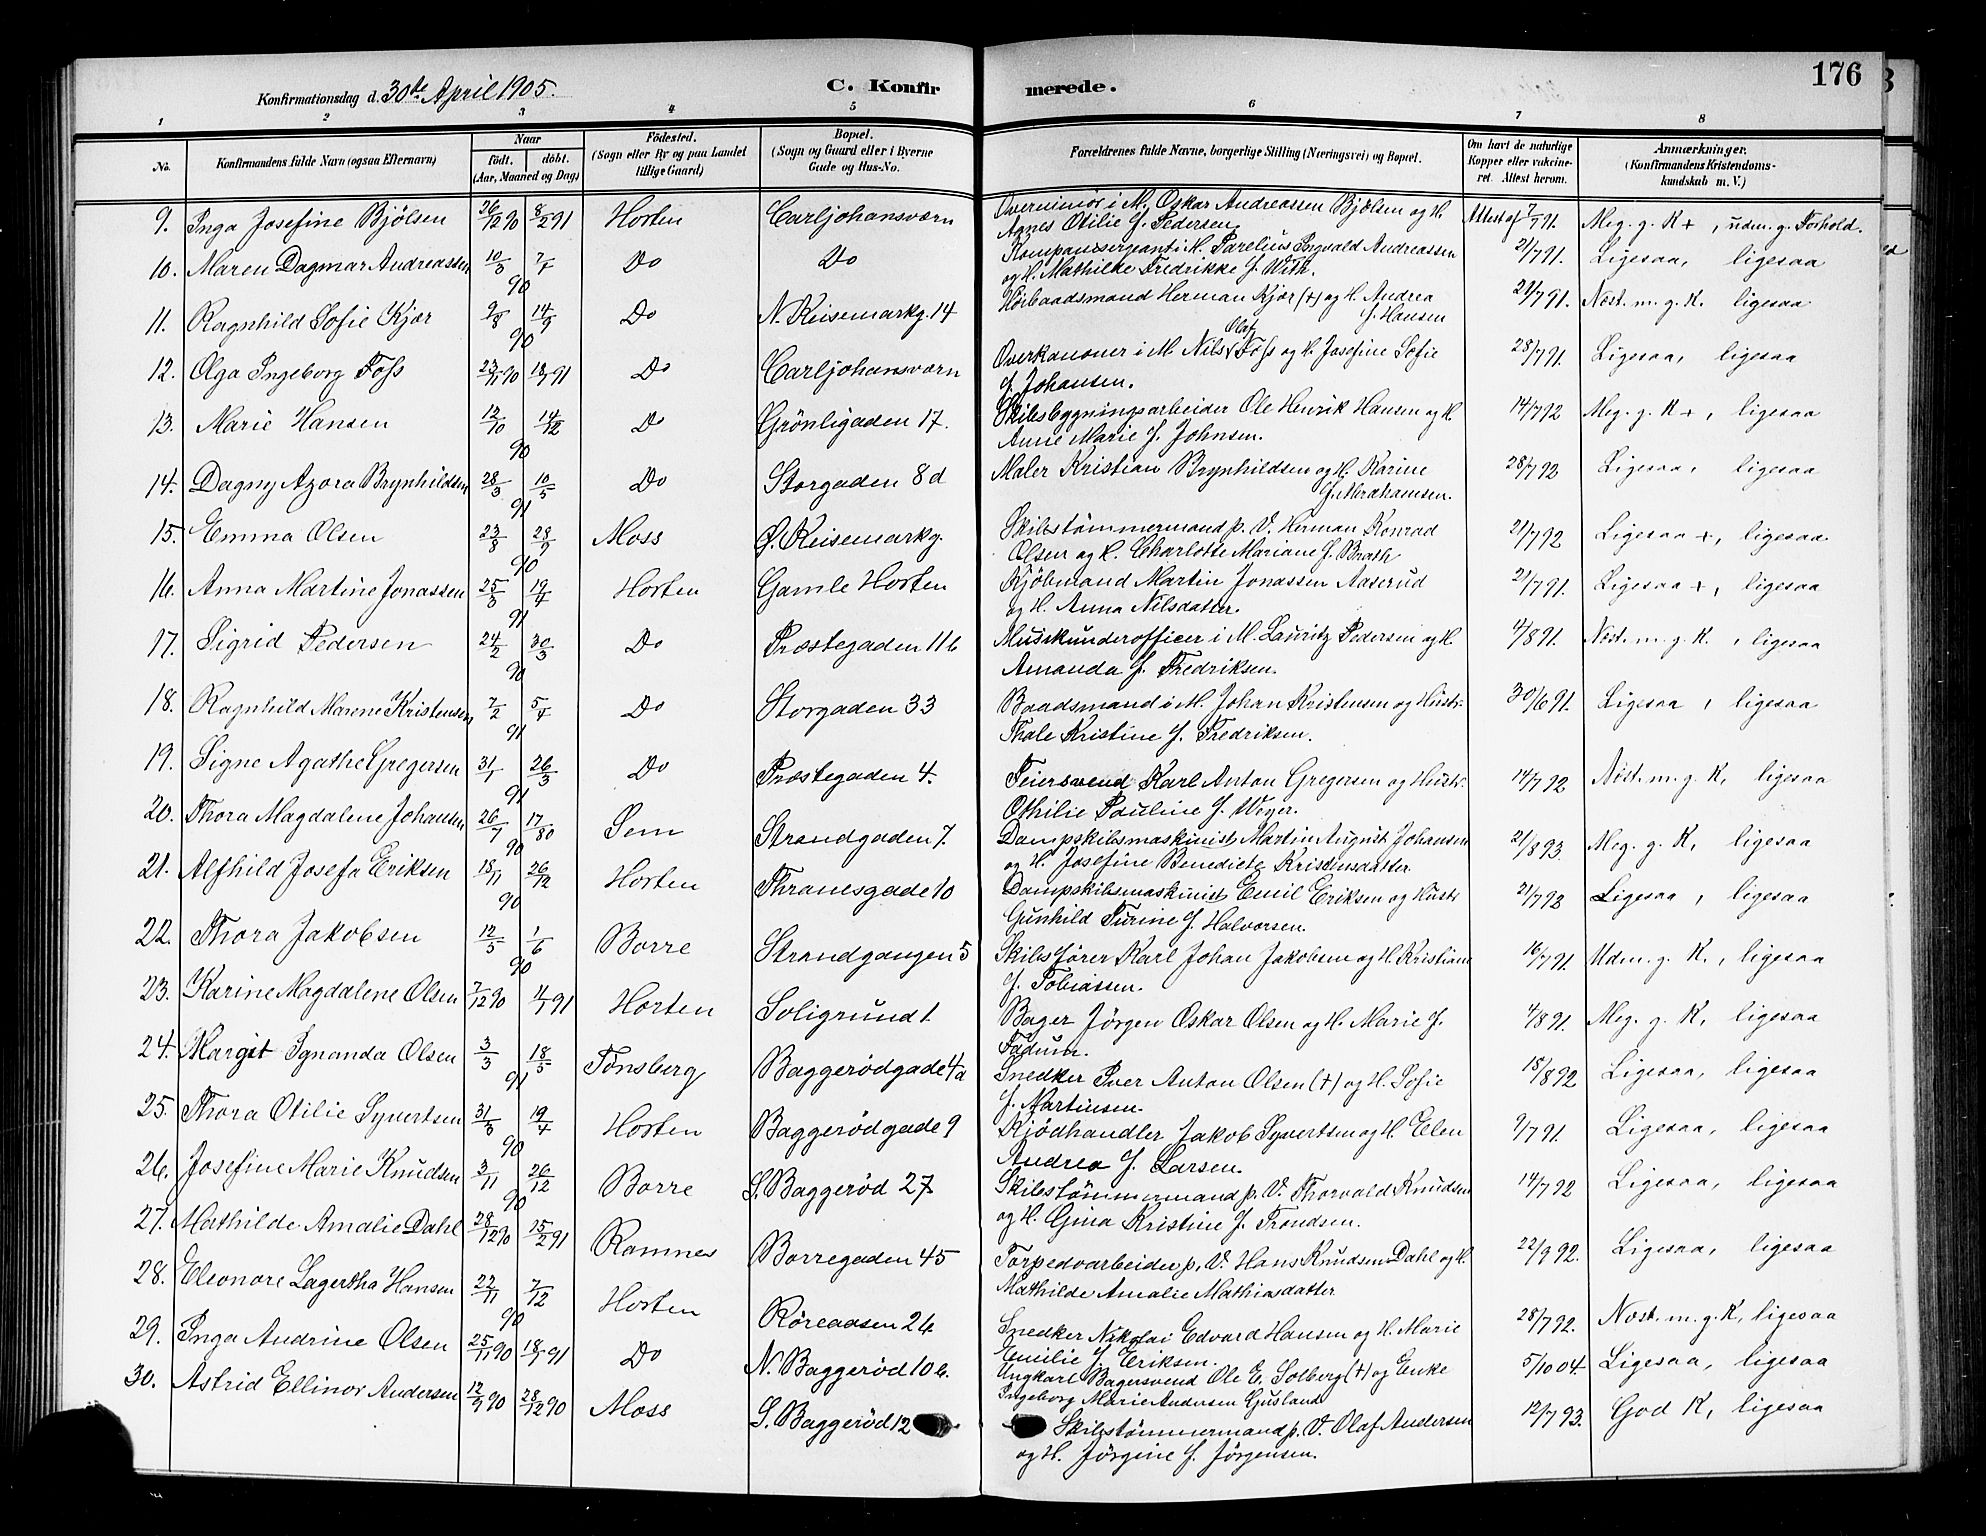 Konfirmationsdag d. 30de April 1905. C. Konfirmerede. 176
1 2 3 4 5 6 7 8
No. Konfirmandens fulde Navn (ogsaa Efternavn) Naar født. døbt. (Aar, Maaned og Dag) Fødested. (Sogn eller By og paa Landet tillige Gaard) Bopæl. (Sogn og Gaard eller i Byerne Gade og Hus-No. Forældrenes fulde Navne, borgerlige Stilling (Næringsvei) og Bopæl. Om havt de naturlige Kopper eller vakcineret. Attest herom. Anmærkninger. (Konfirmandens Kristendomskundskab m. V.)
9. Inga Josefine Bjölsen 26/12 90 8/2 91 Horten Carljohansværn Overminör i M. Oskar Andreassen Bjölsen og H. Attest af 7/7 91. Meg. g. K +, udm. g. Forhold.
Agnes Otilie f. Pedersen
10. Maren Dagmar Andreassen 10/3 7/4 90 Do Do Kompanisergeant i M. Parelius Ingvald Andreassen 21/7 91. Ligesaa, ligesaa
og H. Mathilde Fredrikke f. With.
11. Ragnhild Sofie Kjær 9/8 14/9 90 Do N. Keisemarkg. 14 Höibaadsmand Herman Kjær (+) og H. Andrea 21/7 91. Næst. m. g. K. ligesaa
f. Hansen
12. Olga Ingeborg Foss 23/11 90 18/1 91 Do Carljohansværn Overkanoner i M. Nils Olaf Foss og H. Josefine Sofie 28/7 91. Ligesaa, ligesaa
f. Johansen.
13. Marie Hansen 12/10 14/12 90 Do Grönligaden 17. Skibsbygningsarbeider Ole Henrik Hansen og H. 14/7 92 Meg. g. K +, ligesaa
Anne Marie f. Johnsen.
14. Dagny Azora Brynhildsen 28/3 10/5 91 Do Storgaden 8 d Maler Kristian Brynhildsen og H. Karine 28/7 92 Ligesaa, ligesaa
f. Abrahamsen.
15. Emma Olsen 23/8 28/9 90 Moss Ø. Keisemarkg. Skibstömmermand p. V. Herman Konrad 21/7 92 Ligesaa +, ligesaa
Olsen og H. Charlotte Mariane f. Brath
16. Anna Martine Jonassen 25/3 19/4 91 Horten Gamle Horten Kjöbmand Martin Jonassen Aaserud 21/7 91. Ligesaa +, ligesaa
og H. Anna Nilsdatter.
17. Sigrid Pedersen 24/2 30/3 90 Do Præstegaden 11 b Musikunderofficer i M. Lauritz Pedersen og H. 4/8 91. Næst. m. g. K., ligesaa
Amanda f. Fredriksen.
18. Ragnhild Marene Kristensen 7/2 5/4 91 Do Storgaden 33 Baadsmand i M. Johan Kristensen og Hustr. 30/6 91. Ligesaa, ligesaa
Thale Kristine f. Fredriksen.
19. Signe Agathe Gregersen 31/1 26/3 91 Do Præstegaden 4. Feiersvend Karl Anton Gregersen og Hustr. 14/7 92 Næst. m. g. K, ligesaa
Othilie Pauline f. Weyer.
20. Thora Magdalene Johansen 26/7 17/80 90 Sem Strandgaden 7. Dampskibsmaskinist Martin August Johansen 21/8 93. Meg. g. K, ligesaa
og H. Josefine Benedicte Kristensdatter.
21. Alfhild Josefa Eriksen 18/11 26/12 90 Horten Thranesgade 10 Dampskibsmaskinist Emil Eriksen og Hustr 21/7 92 Ligesaa, ligesaa
Gunhild Turine f. Halvorsen.
22. Thora Jakobsen 12/5 1/6 90 Borre Strandgangen 5 Skibsförer Karl Johan Jakobsen og H. Kristiane 16/7 91. Udm. g. K., ligesaa
f. Tobiassen.
23. Karine Magdalene Olsen 7/12 90 4/1 91 Horten Soligrund 1. Bager Jörgen Oskar Olsen og H. Marie f. 4/8 91. Meg. g. K, ligesaa
Fadum.
24. Margit Ignanda Olsen 3/3 18/5 91 Tönsberg Baggerödgade 4 a Snedker Iver Anton Olsen (+) og H. Sofie 18/8 92 Ligesaa, ligesaa
f. Martinsen.
25. Thora Otilie Syvertsen 31/3 19/4 90 Horten Baggerödgade 9 Kjödhandler Jakob Syvertsen og H. Elen 9/7 91. Ligesaa, ligesaa
Andrea f. Larsen.
26. Josefine Marie Knudsen 3/11 26/12 90 Borre S. Baggeröd 27 Skibstömmermand p. V. Thorvald Knudsen 14/7 92 Ligesaa, ligesaa
og H. Gina Kristine f. Trondsen.
27. Mathilde Amalie Dahl 28/12 90 15/2 91 Ramnes Borregaden 45 Torpedoarbeider p. V. Hans Knudsen Dahl og H. 22/9 92. Ligesaa, ligesaa
Mathilde Amalie Mathiasdatter
28. Eleonore Lagertha Hansen 22/11 7/12 90 Horten Röreaasen 26 Snedker Nikolai Edvard Hansen og H. Marie 28/7 92. Næst. m. g. K, ligesaa
Emilie f. Eriksen.
29. Inga Andrine Olsen 25/11 90 18/1 91 Do N. Baggeröd 10 b. Ungkarl Bagersvend Ole E. Solberg (+) og Enke 5/10 04. Ligesaa, ligesaa
Ingeborg Marie Andersen Gjusland
30. Astrid Ellinor Andersen 12/9 90 28/12 90 Moss S. Baggeröd 12 Skibstömmermand p. V. Olaf Andersen 12/7 93. God K, ligesaa
og H. Jörgine f. Jörgensen.